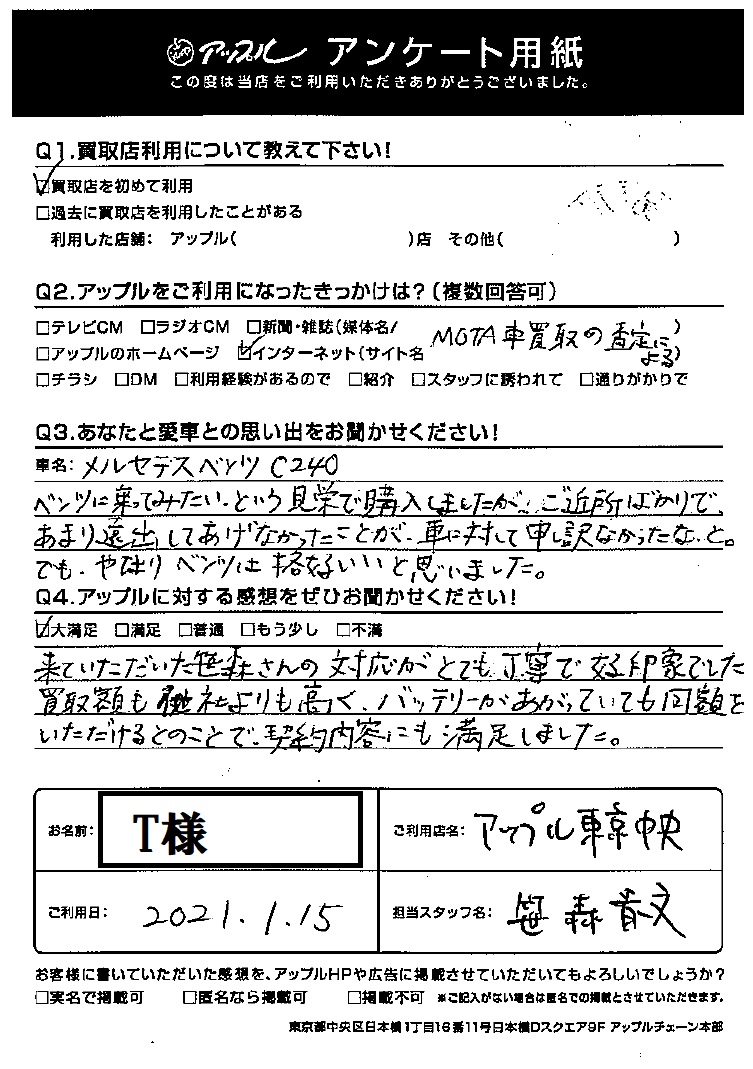 アップル アンケート用紙
この度は当店をご利用いただきありがとうございました。
Q1.買取店利用について教えて下さい!
☑買取店を初めて利用
□過去に買取店を利用したことがある
利用した店舗: アップル( )店 その他( )
Q2.アップルをご利用になったきっかけは?(複数回答可)
□テレビCM □ラジオCM □新聞・雑誌(媒体名/ )
□アップルのホームページ ☑インターネット(サイト名 MOTA車買取の査定による)
□チラシ □DM □利用経験があるので □紹介 □スタッフに誘われて □通りがかりで
Q3.あなたと愛車との思い出をお聞かせください!
車名: メルセデスベンツ C240
ベンツに乗ってみたい、という見栄で購入しましたが、ご近所ばかりで、
あまり遠出してあげなかったことが、車に対して申し訳なかったな、と。
でも、やはりベンツは格好いいと思いました。
Q4.アップルに対する感想をぜひお聞かせください!
☑大満足 □満足 □普通 □もう少し □不満
来ていただいた笹森さんの対応がとても丁寧で好印象でした
買取額も他社よりも高く、バッテリーがあがっていても同額を
いただけるとのことで、契約内容にも満足しました。
お名前: T様
ご利用店名: アップル東京中央
ご利用日: 2021.1.15
担当スタッフ名: 笹森貴文
お客様に書いていただいた感想を、アップルHPや広告に掲載させていただいてもよろしいでしょうか?
□実名で掲載可 □匿名なら掲載可 □掲載不可 ※ご記入がない場合は匿名での掲載とさせていただきます。
東京都中央区日本橋1丁目16番11号日本橋Dスクエア9F アップルチェーン本部